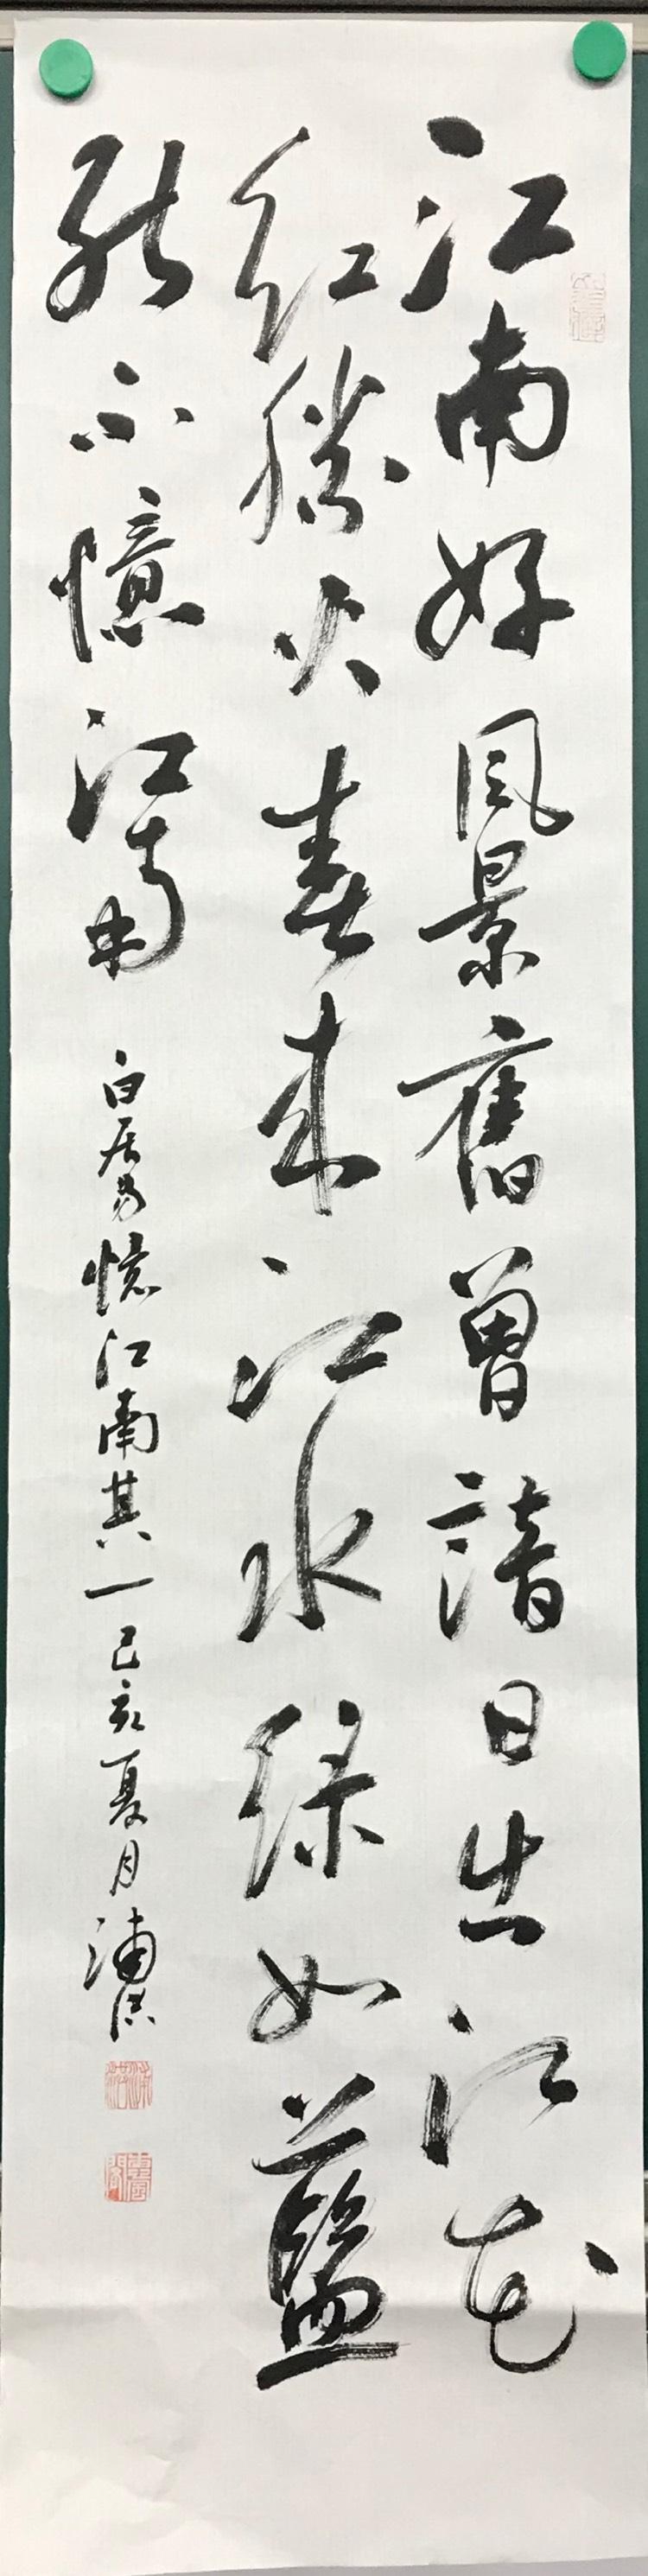 江南好風景舊曾諳日出江花
紅勝火春來江水綠如藍
能不憶江南
白居易憶江南其一己亥夏月